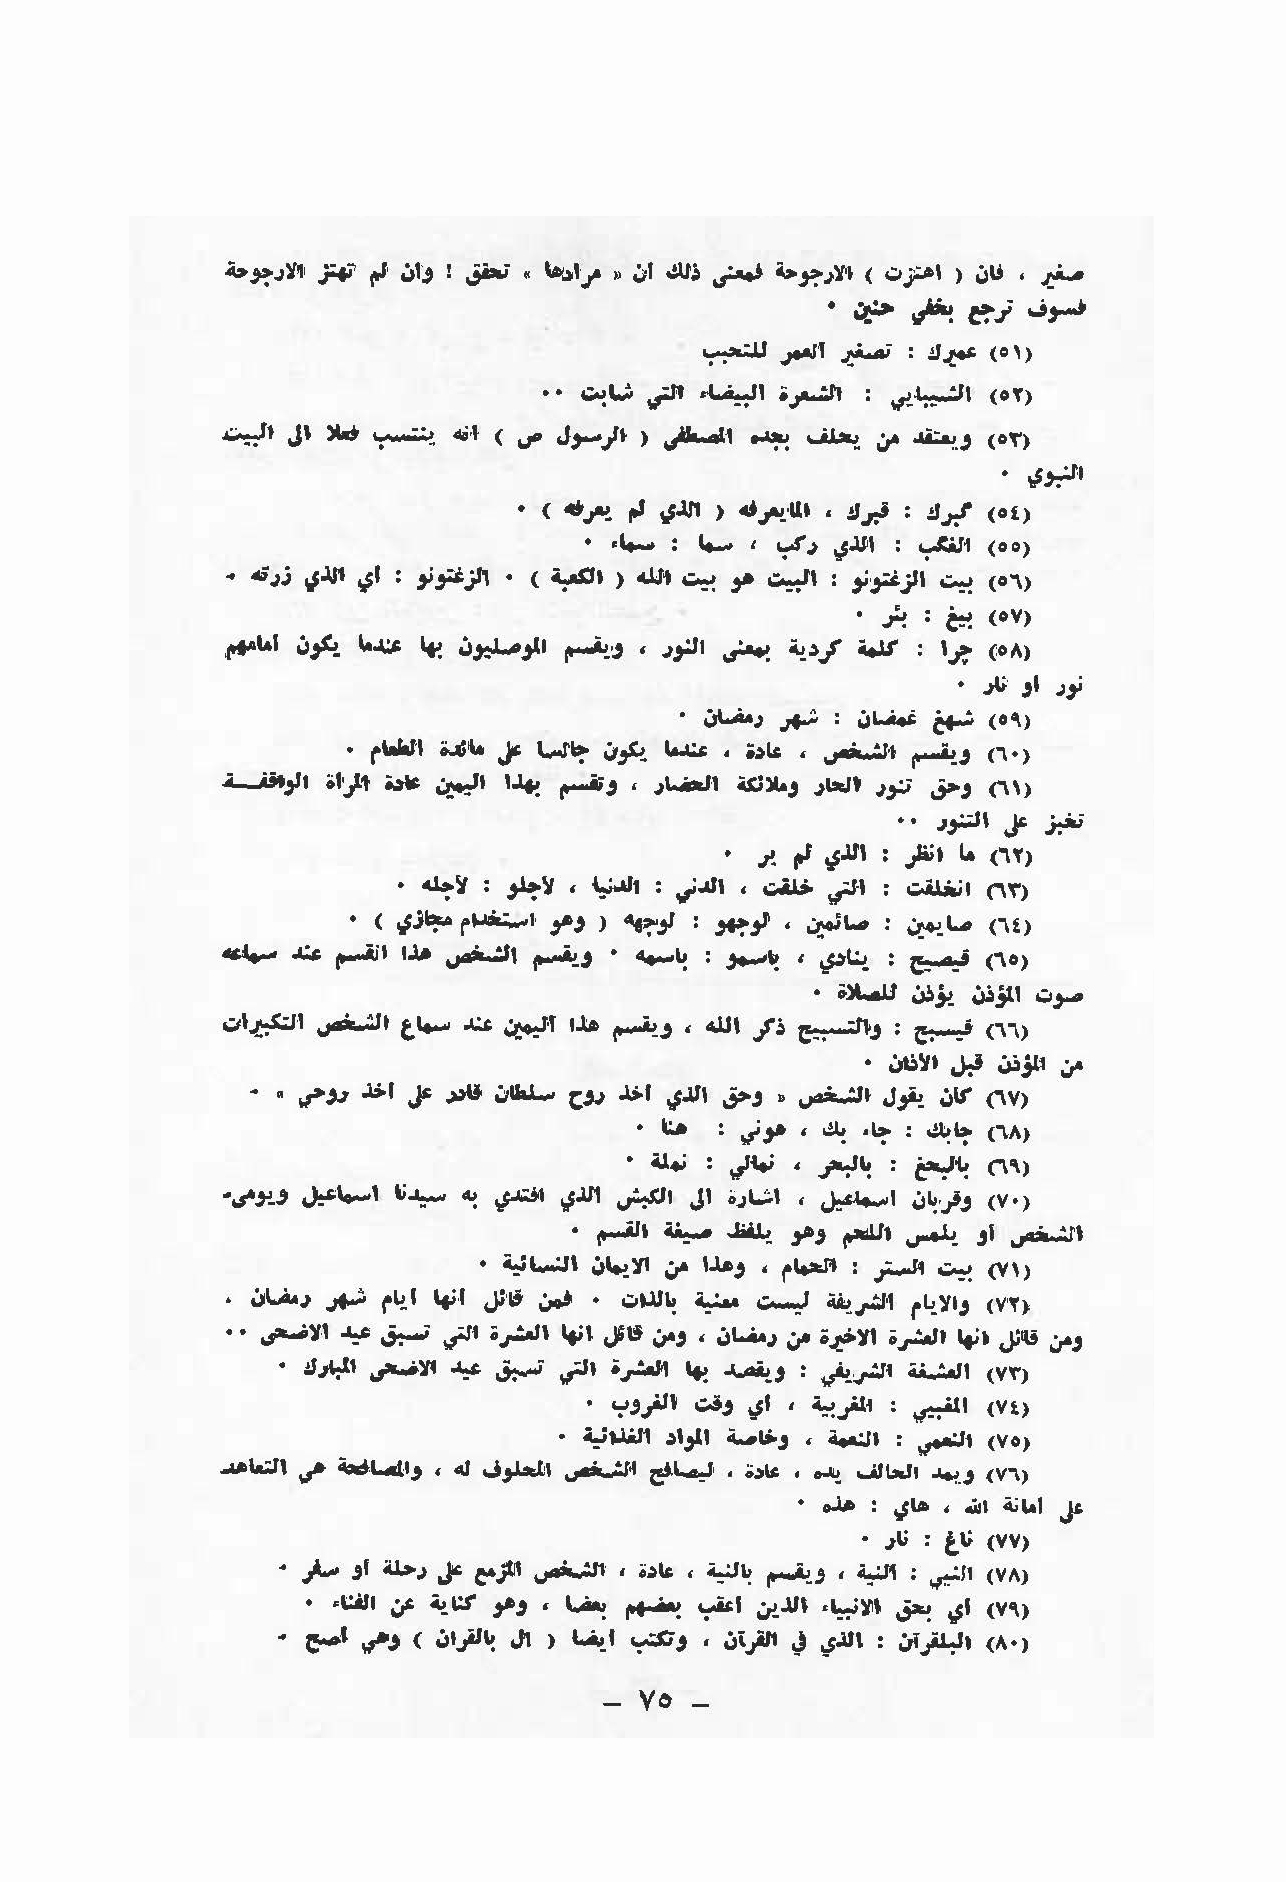 صغير ، فان ( اهتزت ) الارجوحة فمعنى ذلك ان « مرادها » تحقق ! وان لم تهتز الارجوحة
فسوف ترجع بخفي حنين ٠
(٥١) عميرك : تصغير العمر للتحبب
(٥٢) الشيبايي : الشعرة البيضاء التي شابت ٠٠
(٥٣) ويعتقد من يحلف بجده المصطفى ( الرسول ص ) انه ينتسب فعلا الى البيت
النبوي ٠
(٥٤) گبرك : قبرك ، المايعرفه ( الذي لم يعرفه ) ٠
(٥٥) الفگب : الذي ركب ، سما : سماء ٠
(٥٦) بيت الزغتونو : البيت هو بيت الله ( الكعبة ) ٠ الزغتونو : أي الذي زرته ٠
(٥٧) بيغ : بئر ٠
(٥٨) چرا : كلمة كردية بمعنى النور ، ويقسم الموصليون بها عندما يكون أمامهم
نور او نار ٠
(٥٩) شهغ غمضان : شهر رمضان ٠
(٦٠) ويقسم الشخص ، عادة ، عندما يكون جالسا على مائدة الطعام ٠
(٦١) وحق تنور الحار وملائكة الحضار ، وتقسم بهذا اليمين عادة المرأة الواقفـــة
تخبز على التنور ٠٠
(٦٢) ما انظر : الذي لم ير ٠
(٦٣) انخلقت : التي خلقت ، الدني : الدنيا ، لاجلو : لأجله ٠
(٦٤) صايمين : صائمين ، لوجهو : لوجهه ( وهو استخدام مجازي ) ٠
(٦٥) قيصيح : ينادي ، باسمو : باسمه ٠ ويقسم الشخص هذا القسم عند سماعه
صوت المؤذن يؤذن للصلاة ٠
(٦٦) قيسبح : والتسبيح ذكر الله ، ويقسم هذا اليمين عند سماع الشخص التكبيرات
من المؤذن قبل الأذان ٠
(٦٧) كان يقول الشخص « وحق الذي أخذ روح سلطان قادر على أخذ روحي » ٠
(٦٨) جابك : جاء بك ، هوني : هنا ٠
(٦٩) بالبحغ : بالبحر ، نمالي : نملة ٠
(٧٠) وقربان اسماعيل ، اشارة الى الكبش الذي افتدي به سيدنا اسماعيل ويومىء
الشخص أو يلمس اللحم وهو يلفظ صيغة القسم ٠
(٧١) بيت الستر : الحمام ، وهذا من الايمان النسائية ٠
(٧٢) والايام الشريفة ليست معنية بالذات ٠ فمن قائل انها أيام شهر رمضان ،
ومن قائل انها العشرة الاخيرة من رمضان ، ومن قائل انها العشرة التي تسبق عيد الاضحى ٠٠
(٧٣) العشغة الشريفي : ويقصد بها العشرة التي تسبق عيد الاضحى المبارك ٠
(٧٤) المغبيي : المغربية ، أي وقت الغروب ٠
(٧٥) النعمي : النعمة ، وخاصة المواد الغذائية ٠
(٧٦) ويمد الحالف يده ، عادة ، ليصافح الشخص المحلوف له ، والمصافحة هي التعاهد
على امانة الله ، هاي : هذه ٠
(٧٧) ناغ : نار ٠
(٧٨) النيي : النية ، ويقسم بالنية ، عادة ، الشخص المزمع على رحلة أو سفر ٠
(٧٩) أي بحق الانبياء الذين أعقب بعضهم بعضا ، وهو كناية عن الفناء ٠
(٨٠) البلقرآن : الذي في القرآن ، وتكتب أيضا ( ال بالقران ) وهي أصح ٠
– ٧٥ –